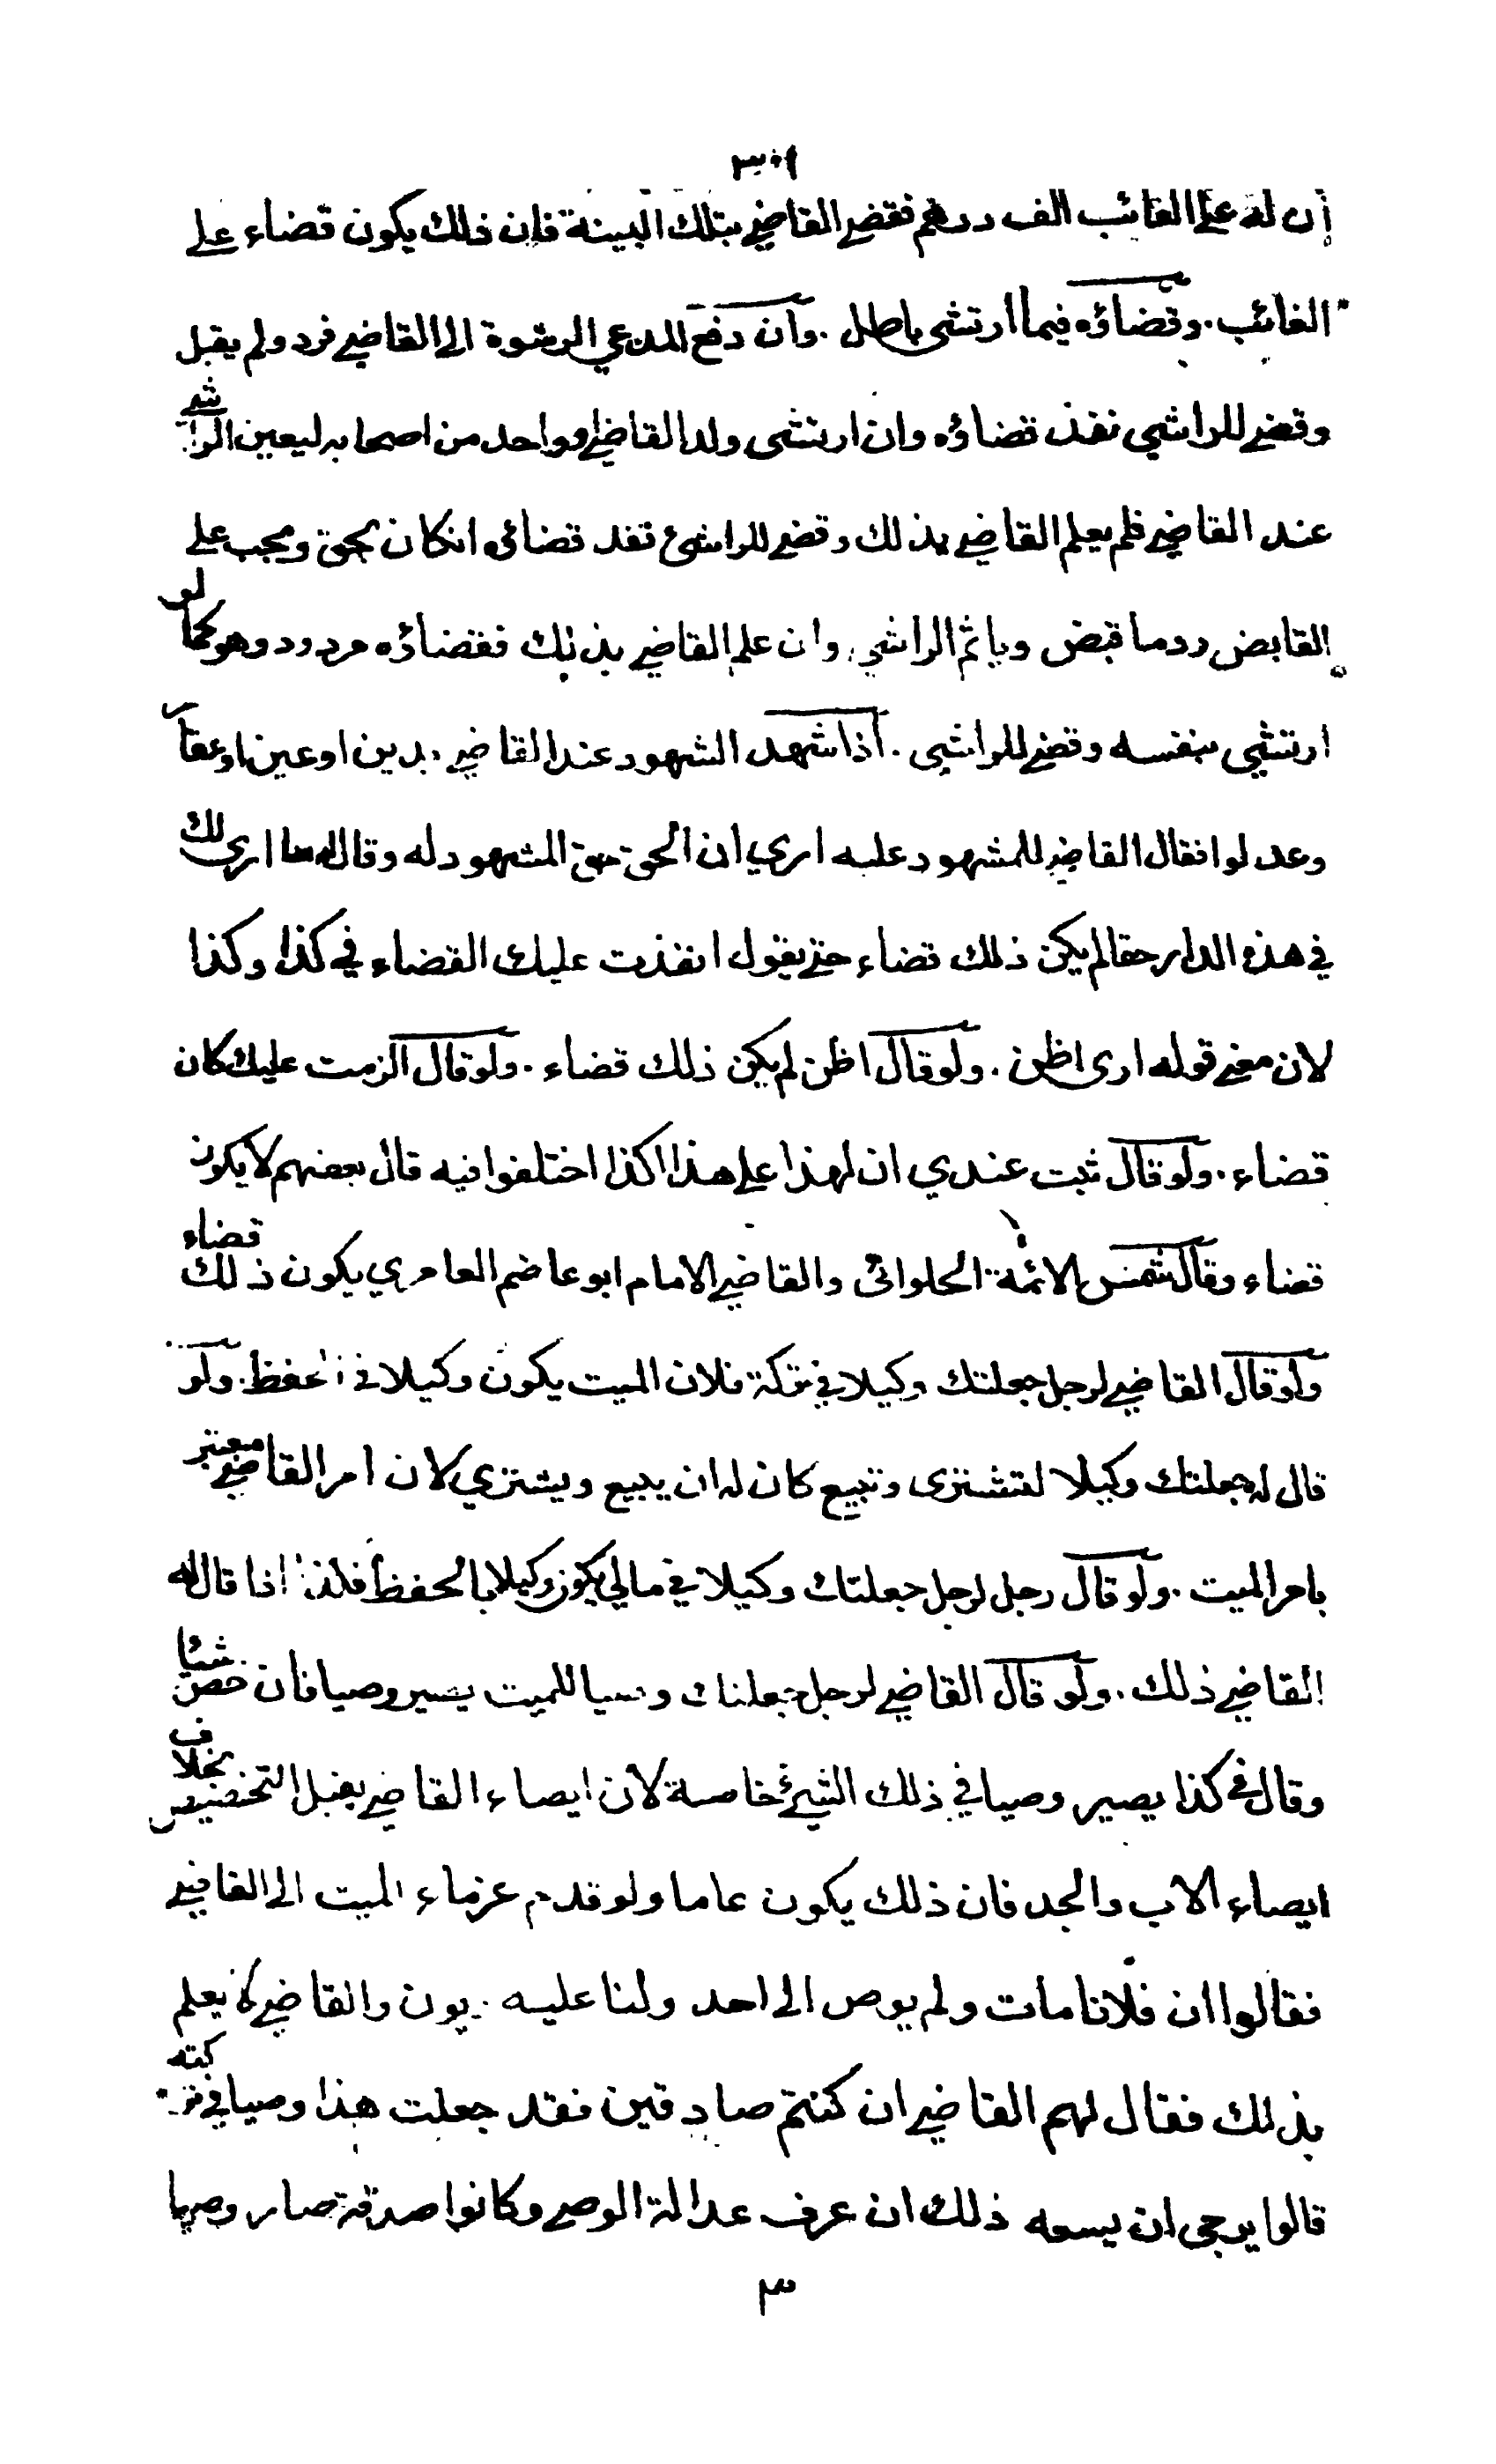 ٣٠١
ان له على الغائب الف درهم فقضى القاضي بتلك البينة فان ذلك يكون قضاء على
الغائب . وقضاؤه فيما ارتشى باطل . وان دفع المدعي الرشوة الى القاضي فرد ولم يقبل
وقضى للراشي نفذ قضاؤه وان ارتشى ولد القاضي او واحد من اصحابه ليعين الراشي
عند القاضي فلم يعلم القاضي بذلك وقضى للراشي نفذ قضائه انكان بحق ويجب على
القابض رد ما قبض وياثم الراشي وان علم القاضي بذلك فقضاؤه مردود وهو كما لو
ارتشى بنفسه وقضى للراشي . اذا شهد الشهود عند القاضي بدين او عين او عقار
وعدلوا فقال القاضي للمشهود عليه اري ان الحق حق المشهود له وقال له ما اري لك
في هذه الدار حقا لم يكن ذلك قضاء حتى يقول انفذت عليك القضاء في كذا وكذا
لان معنى قوله ارى اظن . ولو قال اظن لم يكن ذلك قضاء . ولو قال الزمت عليك كان
قضاء . ولو قال ثبت عندي ان لهذا على هذا كذا اختلفوا فيه قال بعضهم لا يكون
قضاء وقال شمس الائمة الحلوائى والقاضي الامام ابو عاضم العامري يكون ذلك قضاء
ولو قال القاضي لرجل جعلتك وكيلا في تركة فلان الميت يكون وكيلا في الحفظ . ولو
قال له جعلتك وكيلا لتشترى وتبيع كان له ان يبيع ويشتري لان امر القاضي معتبر
بامر الميت . ولو قال رجل لرجل جعلتك وكيلا في مالي يكون وكيلا بالحفظ فلذا اذا قال له
القاضي ذلك . ولو قال القاضي لرجل جعلتك وصيا للميت يصير وصيا فان خص شيئا
وقال في كذا يصير وصيا في ذلك الشيئ خاصة لان ايصاء القاضي يقبل التخصيص بخلاف
ايصاء الاب والجد فان ذلك يكون عاما ولو قدم غرماء الميت الى القاضي
فقالوا ان فلانا مات ولم يوص الى احد ولنا عليه ديون والقاضي لا يعلم
بذلك فقال لهم القاضي ان كنتم صادقين فقد جعلت هذا وصيا في تركته
قالوا يرجى ان يسعه ذلك ان عرف عدالة الوصي وكانوا صدقة صار وصيا
٣